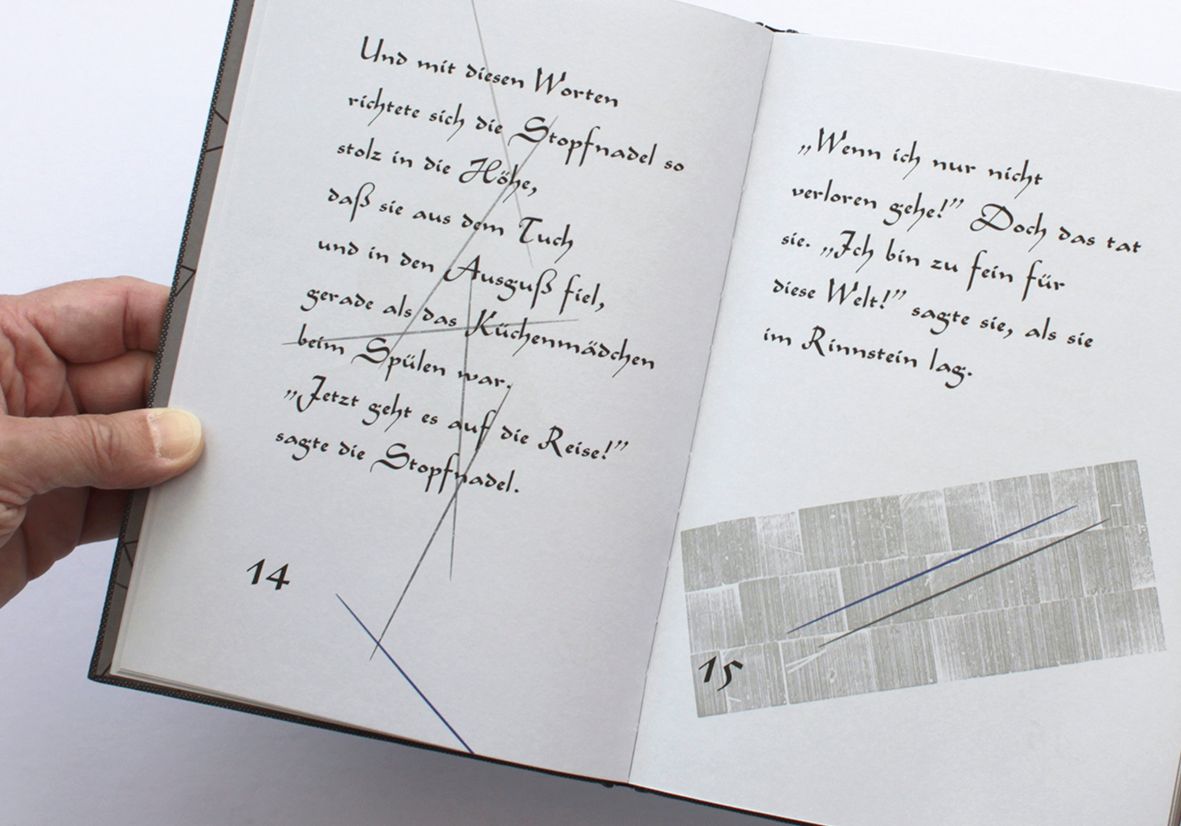 Und mit diesen Worten
richtete sich die Stopfnadel so
stolz in die Höhe,
daß sie aus dem Tuch
und in den Ausguß fiel,
gerade als das Küchenmädchen
beim Spülen war.
„Jetzt geht es auf die Reise!”
sagte die Stopfnadel.
14
„Wenn ich nur nicht
verloren gehe!” Doch das tat
sie. „Ich bin zu fein für
diese Welt!” sagte sie, als sie
im Rinnstein lag.
15